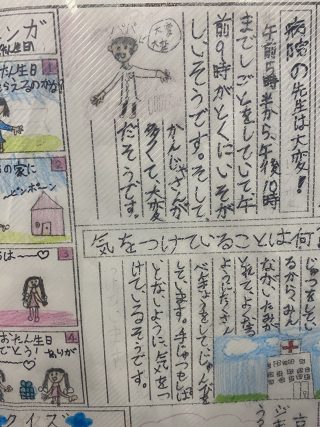 病院の先生は大変!
午前5時半から、午後10時
までしごとをしていて午
前9時がとくにいそが
しいそうです。そして、
かんじゃさんが
多くて、大変
だそうです。
大変
大変
気をつけていることは何?
じゅつをしてい
るから、みん
ながいたみが
とれてよくなる
ようにたくさん
べんきょうをして、じゅんびを
しています。手じゅつもしっぱ
いしないように、気をつ
けているそうです。
ンガ
たん生日
1
たん生日
らえるのかな
2
の家に
ピンポーン
3
は〜♡
4
おたん生日
でとう!
ありが
クイズ